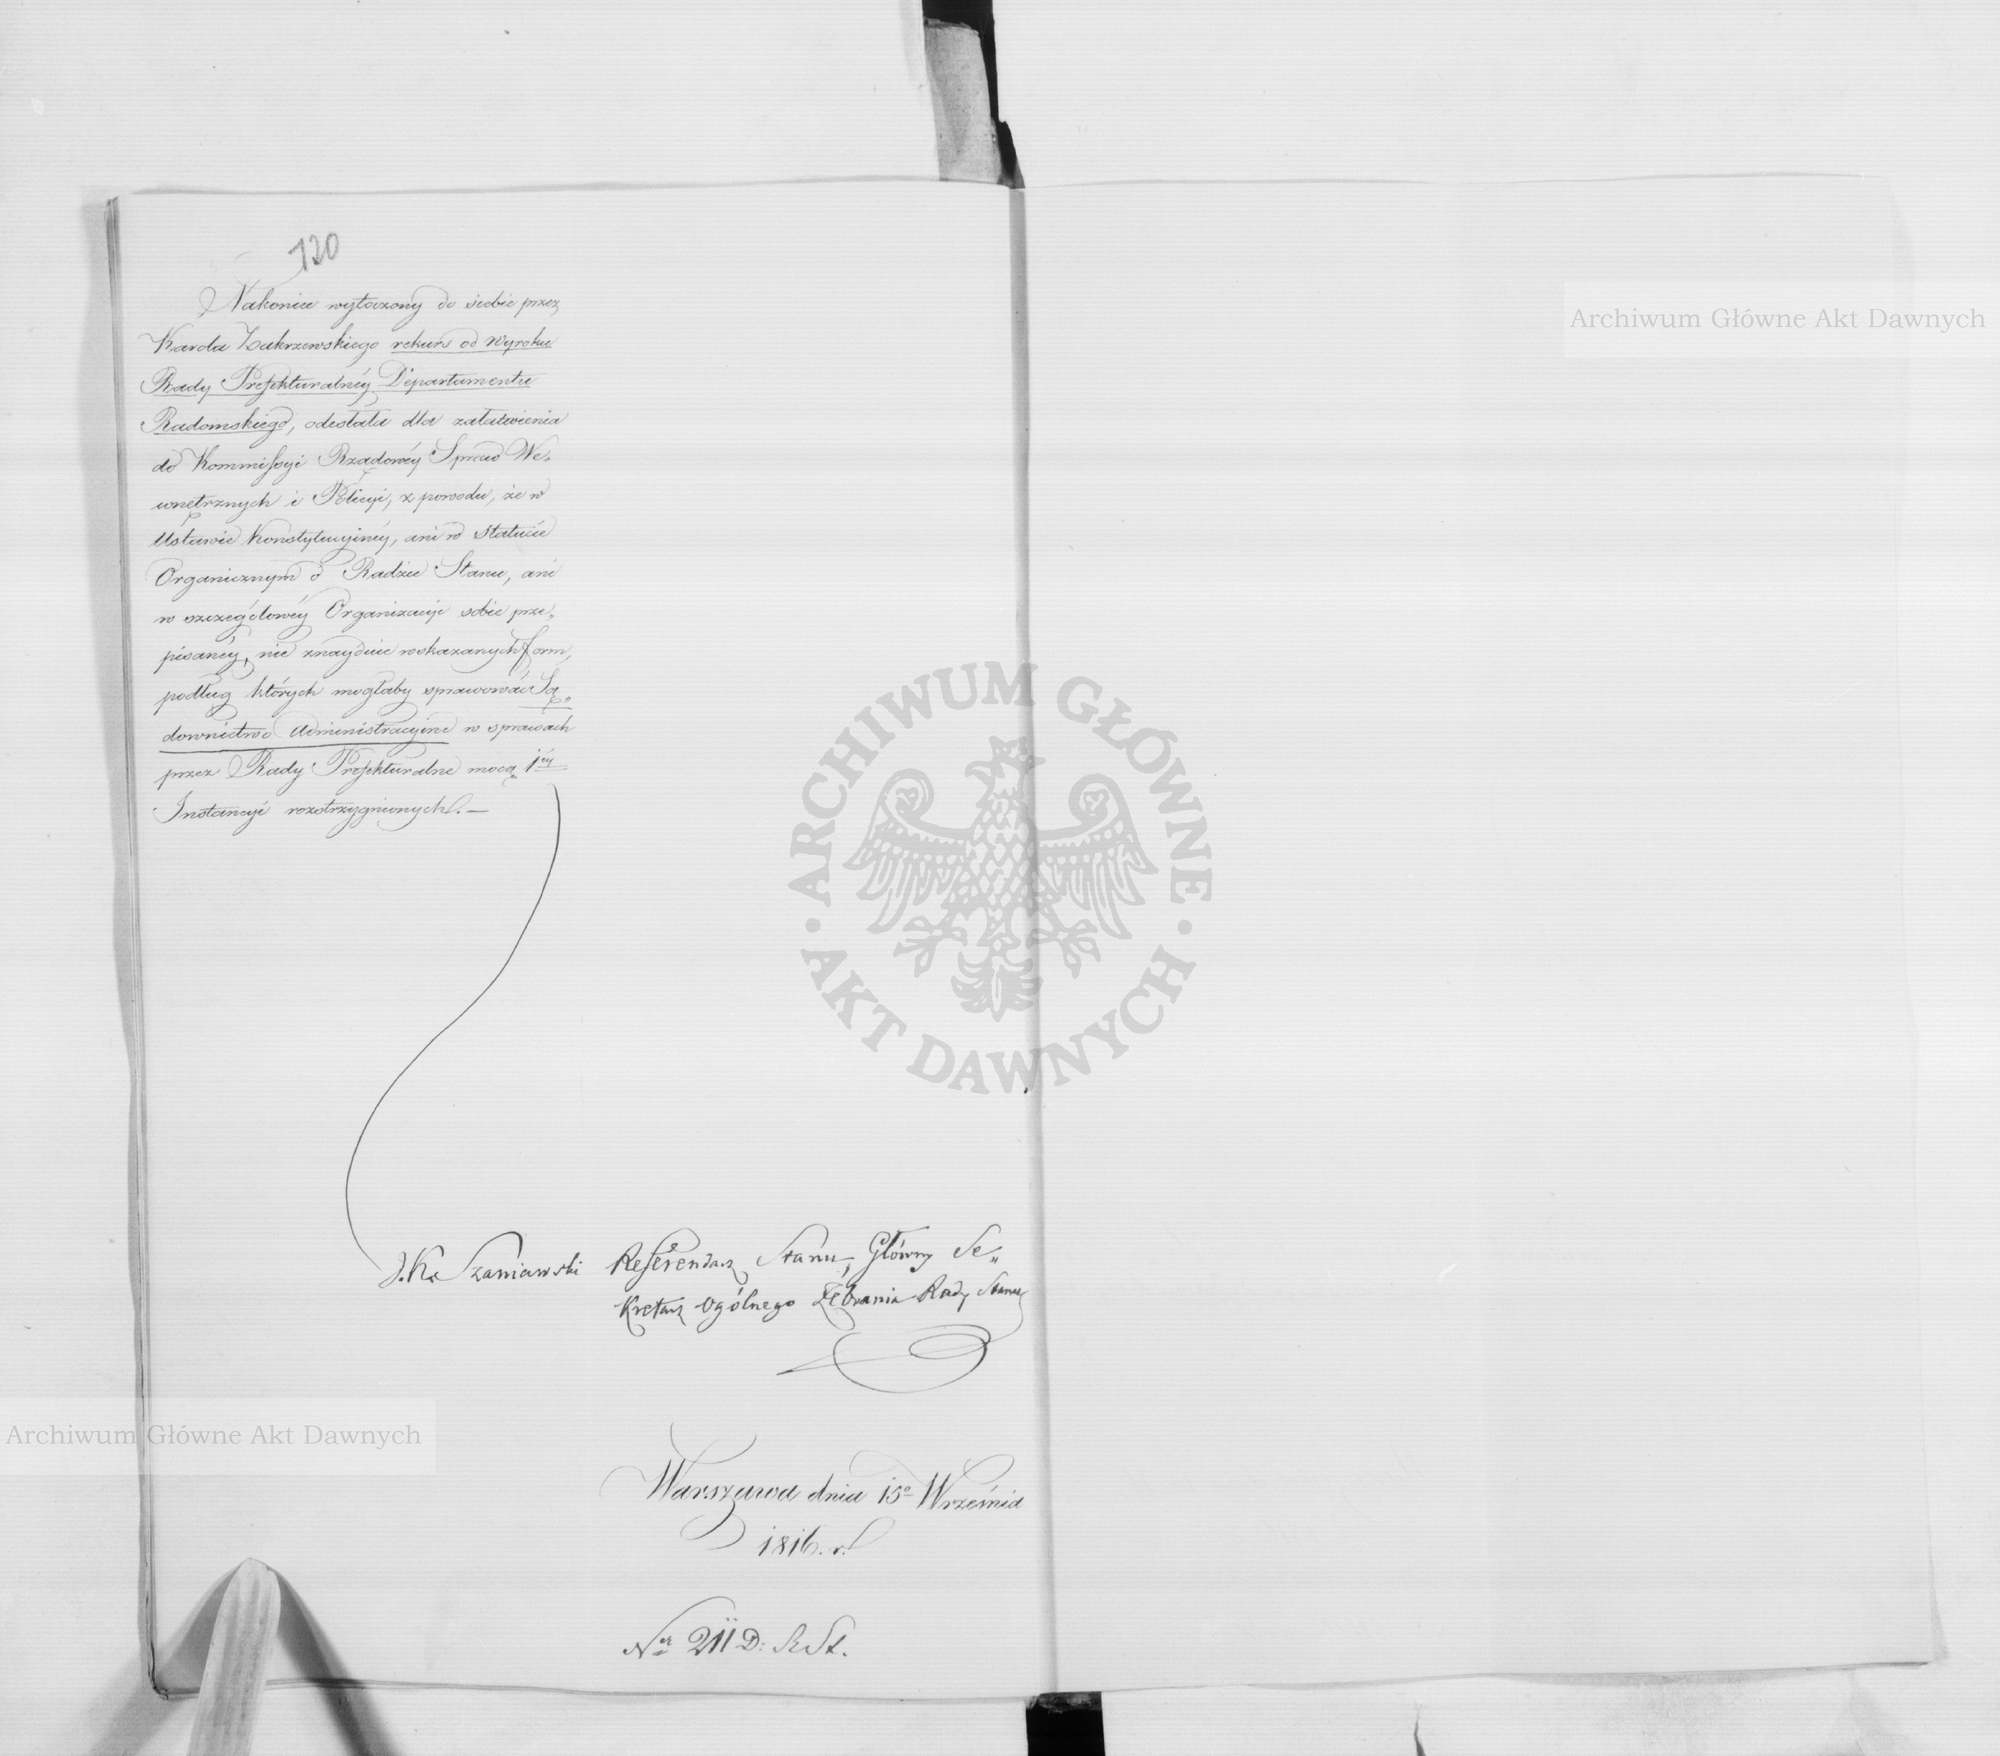 120
Nakoniec wytoczony do siebie przez
Karola Zakrzewskiego rekurs od Wyroku
Rady Prefekturalnéy Departamentu
Radomskiego, odesłała dla załatwienia
do Kommissyi Rządowéy Spraw We„
wnętrznych i Policyi, z powodu, że w
Ustawie Konstytucyinéy, ani w Statucie
Organicznym o Radzie Stanu, ani
w szczególowéy Organizacyi sobie prze„
pisanéy, nie znayduie wskazanych form,
podług których mogłaby sprawować Są„
downictwo Administracyine w sprawach
przez Rady Prefekturalne mocą 1éy
Instancyi rozstrzygnionych. —
J. K. Szaniawski Referendarz Stanu, Główny Se„
kretarz Ogólnego Zebrania Rady Stanu
Warszawa dnia 15o Września
1816. r.
Ner 211 D: R St.
Archiwum Główne Akt Dawnych
ARCHIWUM GŁÓWNE
AKT DAWNYCH
Archiwum Główne Akt Dawnych